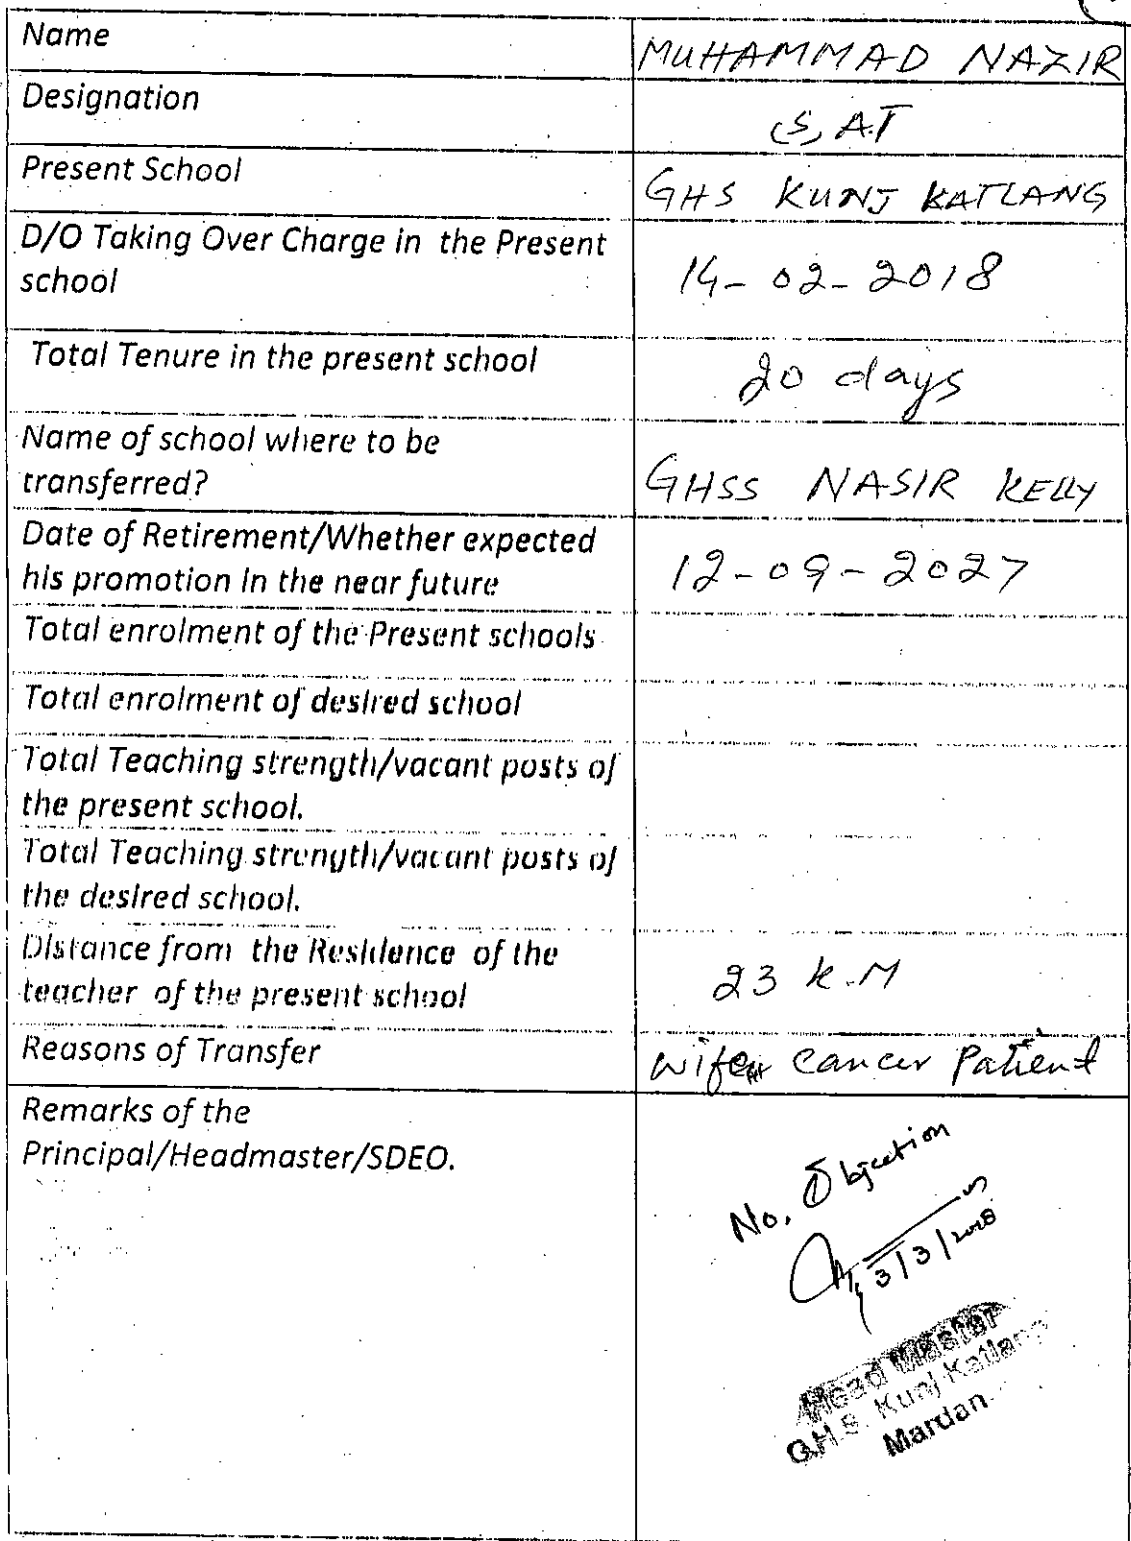 Name
MUHAMMAD NAZIR
Designation
(S) AT
Present School
GHS KUNJ KATLANG
D/O Taking Over Charge in the Present
school
14-02-2018
Total Tenure in the present school
20 days
Name of school where to be
transferred?
GHSS NASIR KELLY
Date of Retirement/Whether expected
his promotion in the near future
12-09-2027
Total enrolment of the Present schools
Total enrolment of desired school
Total Teaching strength/vacant posts of
the present school.
Total Teaching strength/vacant posts of
the desired school.
Distance from the Residence of the
teacher of the present school
23 K.M
Reasons of Transfer
wife cancer Patient
Remarks of the
Principal/Headmaster/SDEO.
No. Objection
3/3/2018
Head Master
G.H.S. Kunj Katlang
Mardan.